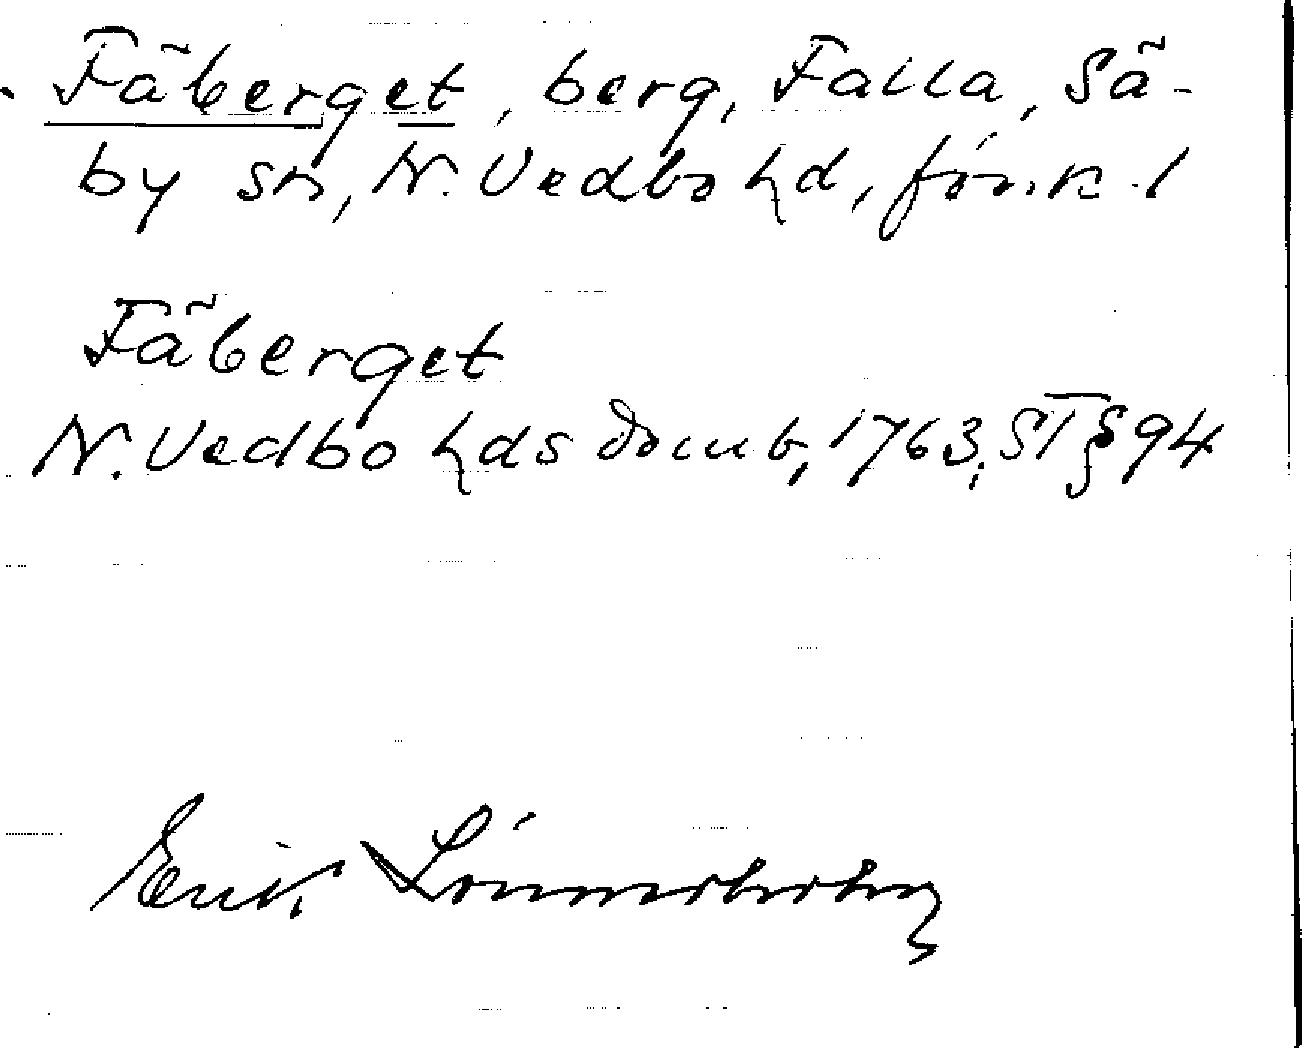 Fäberget, berg, Falla, Sä-
by sn, N. Vedbo hd, Jönk. l
Fäberget
N. Vedbo hds domb, 1763, ST § 94
Erik